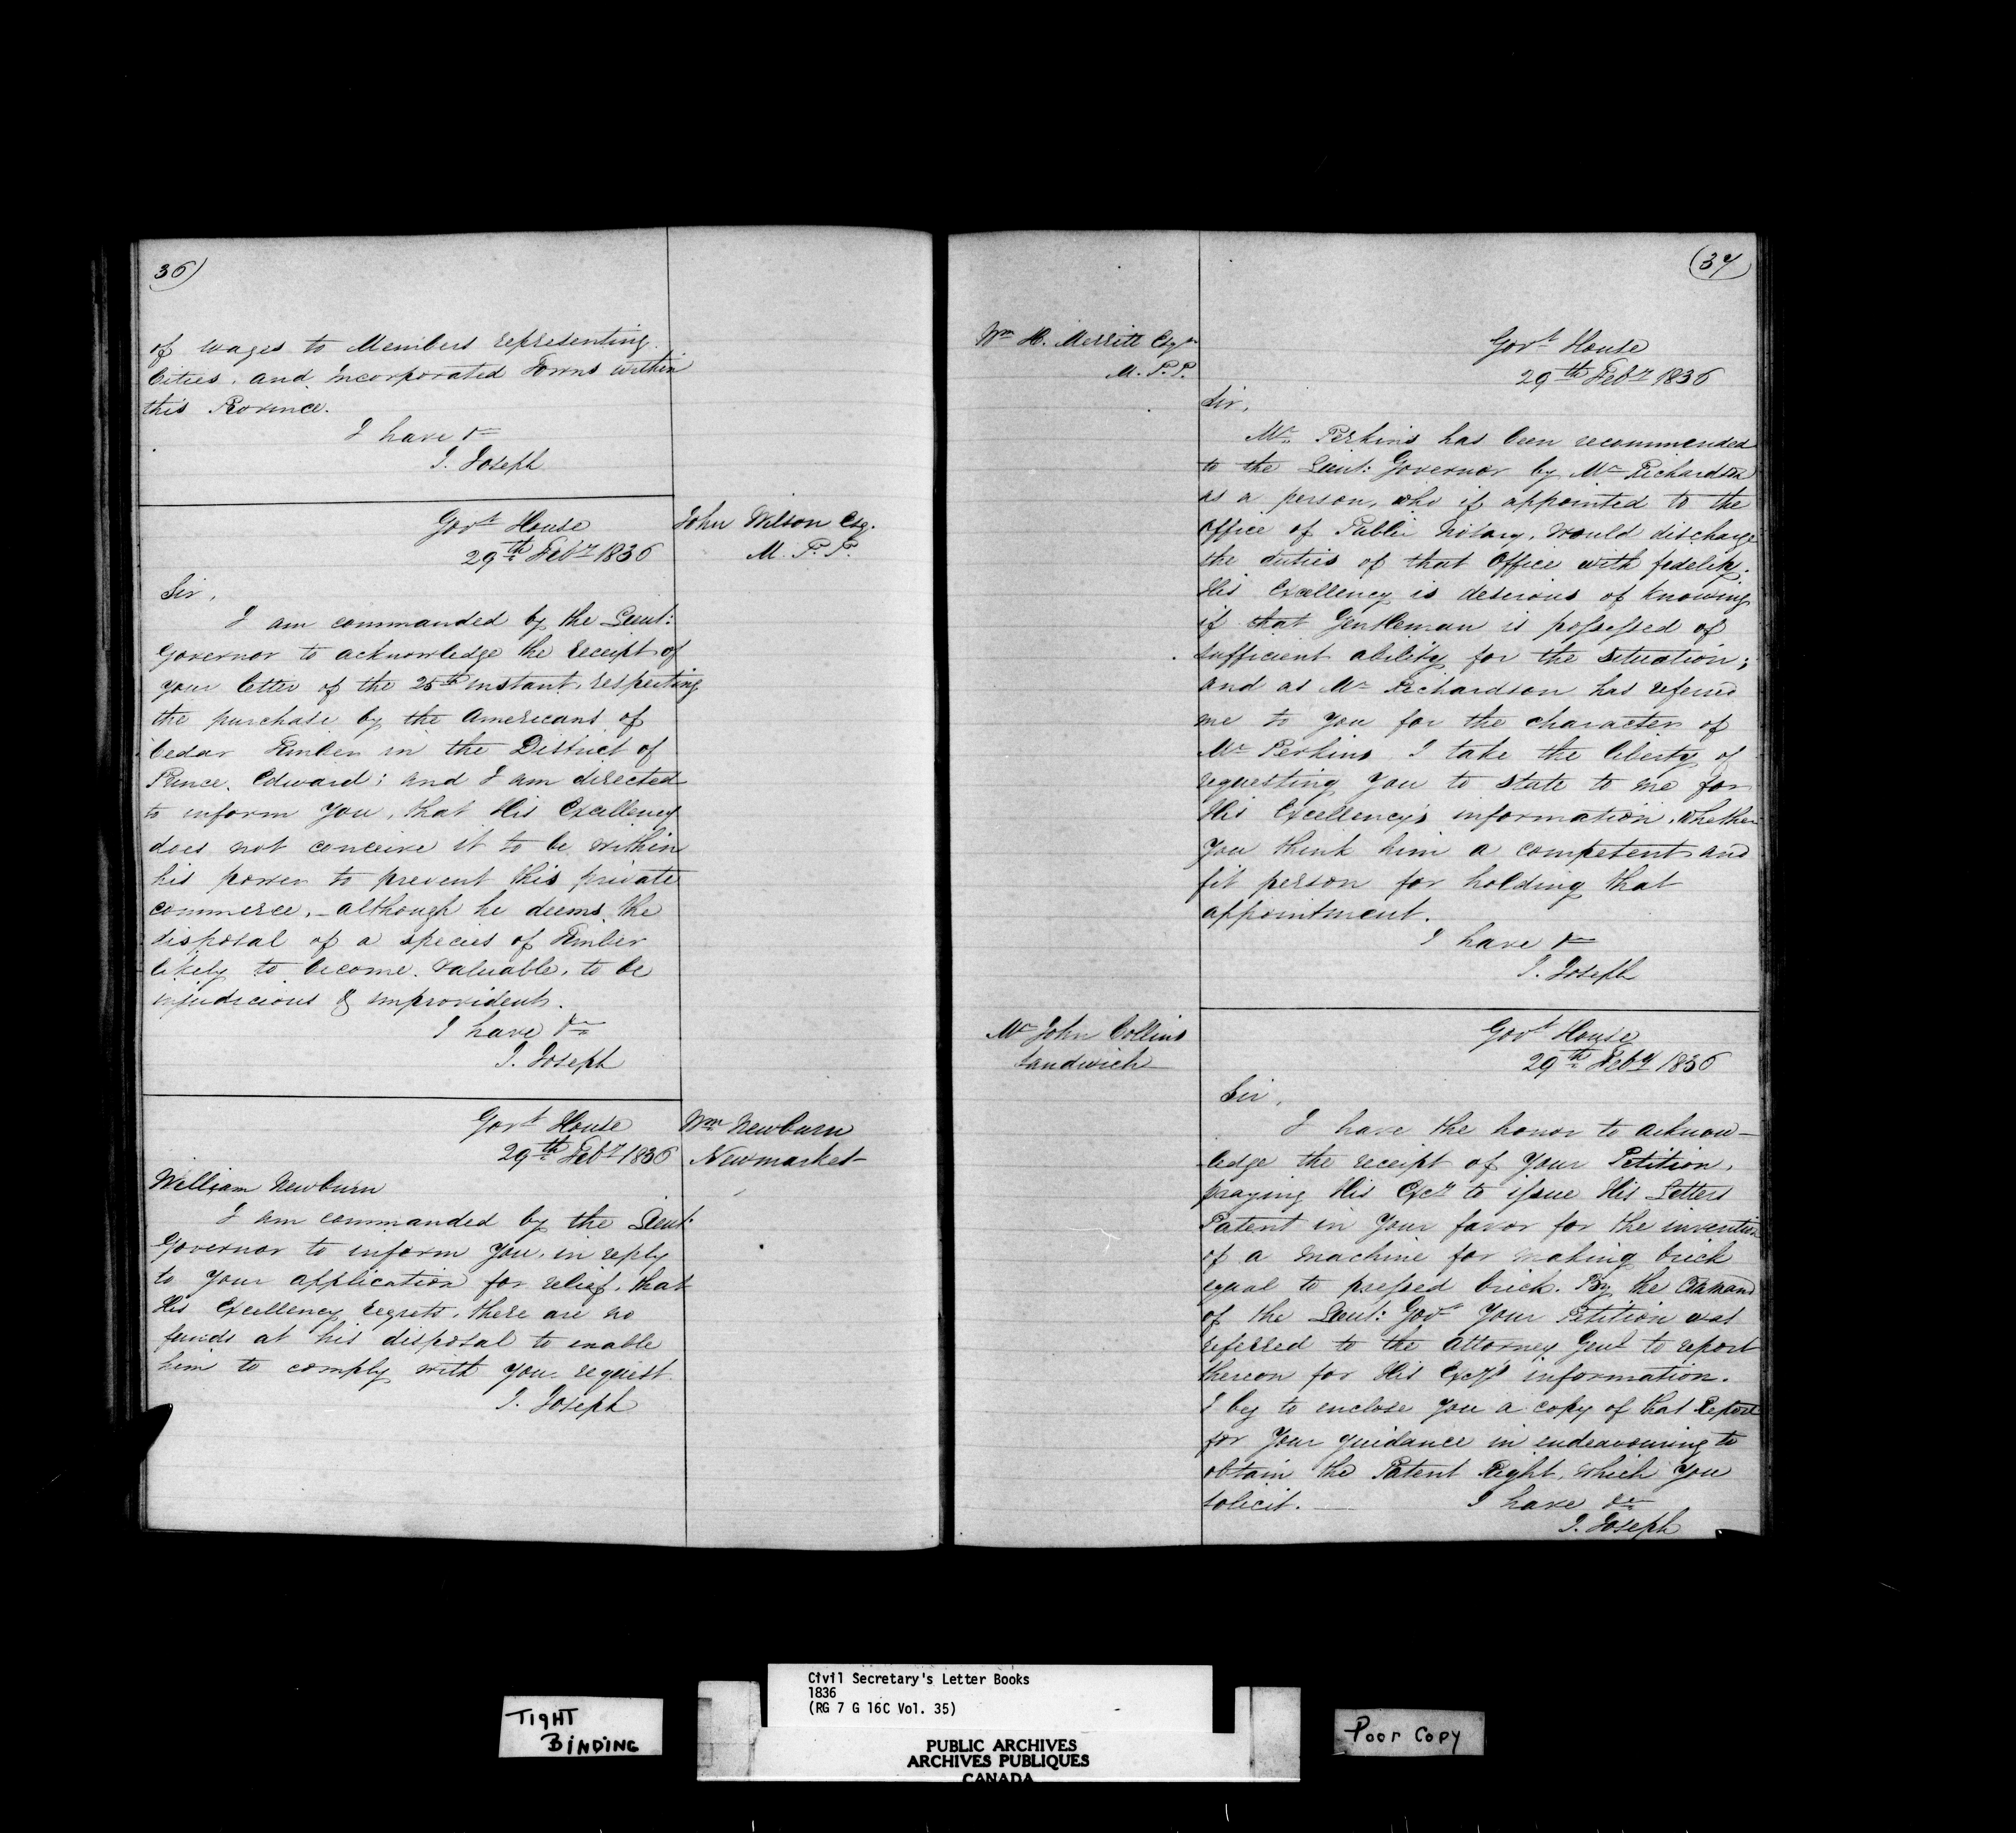 36)
of wages to Members representing
Cities, and incorporated Towns within
this Province.
I have &c
J. Joseph
Govt House
29th Feby 1836
John Wilson Esq.
M. P. P.
Sir,
I am commanded by the Lieut:
Governor to acknowledge the receipt of
your letter of the 25th instant, respecting
the purchase by the Americans of
Cedar Timber in the District of
Prince Edward; and I am directed
to inform you, that His Excellency
does not conceive it to be within
his power to prevent this private
commerce, - although he deems the
disposal of a species of Timber
likely to become valuable, to be
injudicious & improvident.
I have &c
J. Joseph
Govt House
29th Feby 1836
Wm Newburn
Newmarket
William Newburn
I am commanded by the Lieut:
Governor to inform you, in reply
to your application for relief, that
His Excellency regrets, there are no
funds at his disposal to enable
him to comply with your request.
J. Joseph
(37)
Wm H. Merritt Esqr
M. P. P.
Govt House
29th Feby 1836
Sir,
Mr Perkins has been recommended
to the Lieut: Governor by Mr Richardson
as a person, who if appointed to the
Office of Public Notary, would discharge
the duties of that Office with fidelity.
His Excellency is desirous of knowing
if that Gentleman is possessed of
sufficient ability for the situation;
and as Mr Richardson has referred
me to you for the character of
Mr Perkins I take the liberty of
requesting you to state to me for
His Excellency's information, whether
you think him a competent and
fit person for holding that
appointment.
I have &c
J. Joseph
Mr John Collins
Sandwich
Govt House
29th Feby 1836
Sir,
I have the honor to acknow-
ledge the receipt of your Petition,
praying His Excy to issue His Letters
Patent in your favor for the invention
of a machine for making brick
equal to pressed brick. By the Command
of the Lieut: Govr your Petition was
referred to the Attorney Genl to report
thereon for His Excy's information.
I beg to enclose you a copy of that Report
for your guidance in endeavouring to
obtain the Patent Right, which you
solicit. I have &c
J. Joseph
TIGHT
BINDING
Civil Secretary's Letter Books
1836
(RG 7 G 16C Vol. 35)
PUBLIC ARCHIVES
ARCHIVES PUBLIQUES
CANADA
Poor Copy